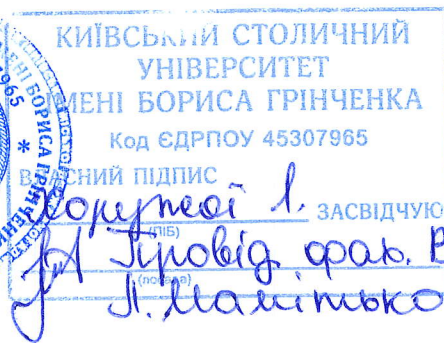 КИЇВСЬКИЙ СТОЛИЧНИЙ
УНІВЕРСИТЕТ
ІМЕНІ БОРИСА ГРІНЧЕНКА
Код ЄДРПОУ 45307965
ВЛАСНИЙ ПІДПИС
Хоружої Л. ЗАСВІДЧУЮ
(ПІБ)
Провід. фах. В
(посада)